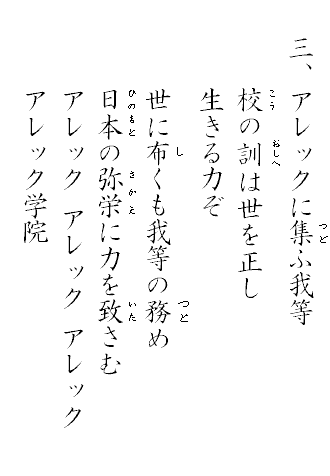 三、アレックに集ふ我等
校の訓は世を正し
生きる力ぞ
世に布くも我等の務め
日本の弥栄に力を致さむ
アレック アレック アレック
アレック学院